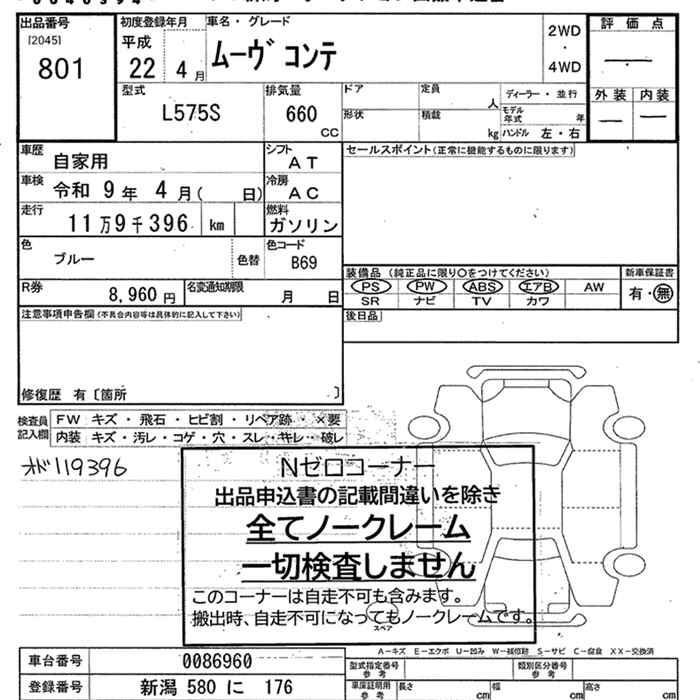 出品番号 初度登録年月 車名・グレード 評価点
[2045] 平成 2WD
801 22 4月 ムーヴ コンテ ・ 4WD
外装 内装
型式 排気量 ドア 定員 人 ディーラー・並行
L575S 660 CC 形状 積載 kg モデル年式 年
ハンドル 左・右
車歴 自家用 シフト AT セールスポイント(正常に機能するものに限ります)
車検 令和 9年 4月( 日) 冷房 AC
走行 11万9千396 km 燃料 ガソリン
色 ブルー 色替 色コード B69
装備品 (純正品に限り○をつけてください) 新車保証書
R券 8,960円 名変通知期限 月 日
PS PW ABS エアB AW 有・無
SR ナビ TV カワ
注意事項申告欄(不具合内容等は具体的に記入して下さい) 後日品
修復歴 有〔箇所 〕
検査員記入欄 FW キズ・飛石・ヒビ割・リペア跡・×要
内装 キズ・汚レ・コゲ・穴・スレ・キレ・破レ
オド119396
Nゼロコーナー
出品申込書の記載間違いを除き
全てノークレーム
一切検査しません
このコーナーは自走不可も含みます。
搬出時、自走不可になってもノークレームです。
スペア
A-キズ E-エクボ U-凹み W-補修跡 S-サビ C-腐食 XX-交換済
車台番号 0086960 型式指定番号 参考 類別区分番号 参考
登録番号 新潟 580 に 176 車庫証明用 参考 長さ cm 幅 cm 高さ cm